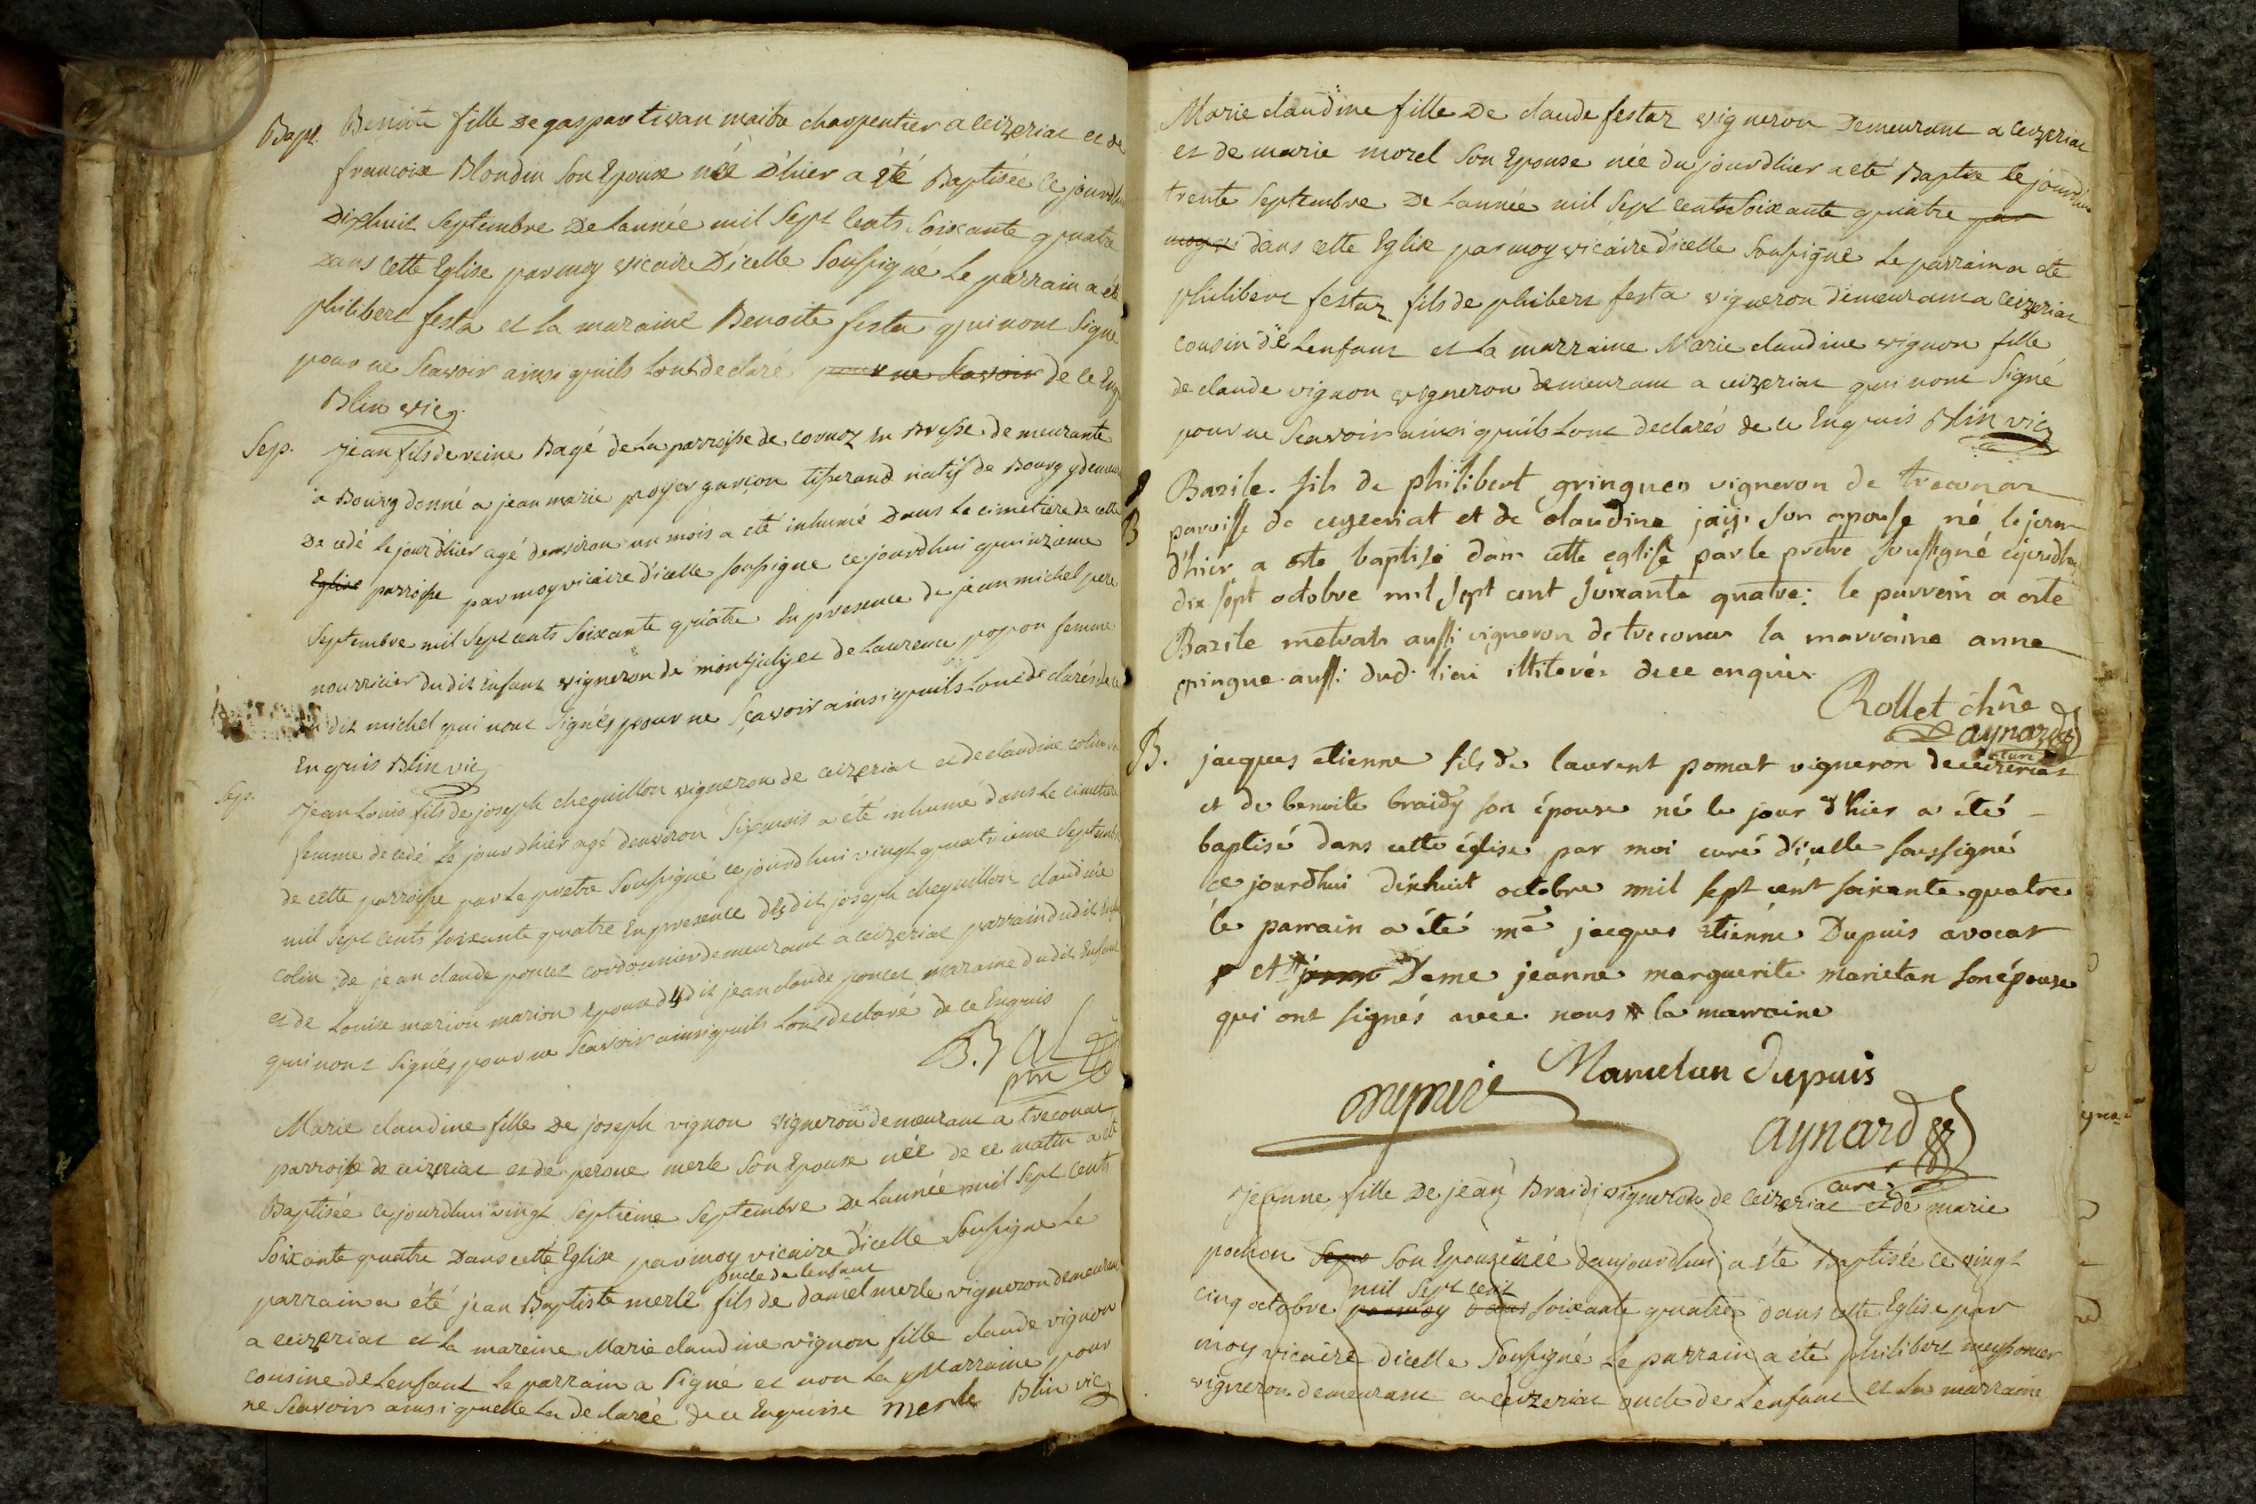 Bapt. Benoite fille De gaspar tivan maitre charpentier a ceizeriat et de
francoise Blondin son Epouse née D'hier a été Baptisée Ce jourdhui
Dixhuit Septembre De Lannée mil Sept Cents Soixante quatre
Dans Cette Eglise par moy vicaire D'icelle Soussigné Le parrain a été
philibert festa et la maraine Benoite festa qui nont Signe
pour ne Scavoir ainsi quils Lont declaré pour ne Scavoir de ce Enq
Blin vic
Sep. jean fils de reine Bagé de La parroisse de En Bresse demeurante
a Bourg donné a jean marie royer garçon tisserand natif de Bourg y demeu
De cedé le jour dhier agé denviron un mois a eté inhumé Dans Le cimetiere de cette
Eglise parroisse par moy vicaire d'icelle soussigne ce jourdhui quinzieme
Septembre mil sept cents soixante quatre En presence de jean michel pere
nourricier dudit Enfant vigneron de montjuly et de Laurence popon femme
dit michel qui nont Signés pour ne Sçavoir ainsi quils Lont declarés de ce
Enquis Blin vic
Sep. Jean Louis fils de joseph cheguillon vigneron de ceizeriat et de claudine colin sa
femme décedé Le jour dhier agé denviron Six mois a été inhumé dans Le cimetiere
de cette parroisse par Le pretre Soussigné ce jourdhui vingt quatrieme Septembre
mil Sept cents soixante quatre En presence dudit joseph cheguillon claudine
colin de jean claude poncet cordonnier demeurant a ceizeriat parrain dudit Enfant
et de Louise marion marion Epouse dudit jean claude poncet maraine dudit Enfant
qui nont Signés pour ne Scavoir ainsi quils Lont declaré de ce Enquis
ptre
Marie claudine fille De joseph vignon vigneron demeurant a treconat
parroisse de ceizeriat et de perone merle Son Epouse née de ce matin a été
Baptisée ce jourdhui vingt Septieme Septembre De Lannée mil Sept cents
Soixante quatre Dans cette Eglise par moy vicaire dicelle Soussigne Le
oncle de Lenfant
parrain a été jean Baptiste merle fils de daniel merle vigneron demeurant
a ceizeriat et la mareine Marie claudine vignon fille claude vignon
cousine de Lenfant Le parrain a signé et non La Marraine pour
ne Scavoir ainsi quelle La declarée de ce Enquise merle Blin vic
Marie claudine fille De claude festaz vigneron Demeurant a ceizeriat
et de marie morel Son Epouse née du jourdhier a eté Baptise le jourdhui
trente Septembre De Lannée mil Sept cents Soixante quatre par
moy vi dans cette Eglise par moy vicaire dicelle Soussigné Le parrain a eté
philibert festaz fils de phibert festa vigneron demeurant a ceizeriat
cousin de Lenfant et La marraine Marie claudine vignon fille
de claude vignon vigneron demeurant a ceizeriat qui nont Signé
pour ne Scavoir ainsi quils Lont declarés de ce Enquis Blin vic
B Bazile fils de philibert gringuer vigneron de treconas
paroisse de ceyzeriat et de claudine jaij son epouse né le jour
d'hier a ete baptisé dans cette eglise par le pretre soussigné cejourdhui
dix sept octobre mil sept cent soixante quatre: le parrein a ete
Bazile metrat aussi vigneron de treconas la marraine anne
gringue aussi dud. lieu illiterés de ce enquis
Rollet chne
aynard
curé
B. jacques etienne fils de laurent pomat vigneron de ceizeriat
et de benoite braidy son épouse né le jour d'hier a été
baptisé dans cette église par moi curé d'icelle soussigné
ce jourdhui dixhuit octobre mil sept cent soixante quatre
le parrain a été me jacques etienne Dupuis avocat
et Dame jeanne marguerite marietan son épouse
qui ont signés avec nous # la marraine
Dupuis Marietan Dupuis
aynard
curé
Jeanne fille De jean Braidi vigneron de ceizeriat et de marie
pochon Son Epouse née daujourdhui a été Baptisée ce vingt
mil Sept cent
cinq octobre par moy soixante quatre dans cette Eglise par
moy vicaire dicelle Soussigné Le parrain a été philibert meyssonier
vigneron demeurant a ceizeriat oncle de Lenfant et La marraine